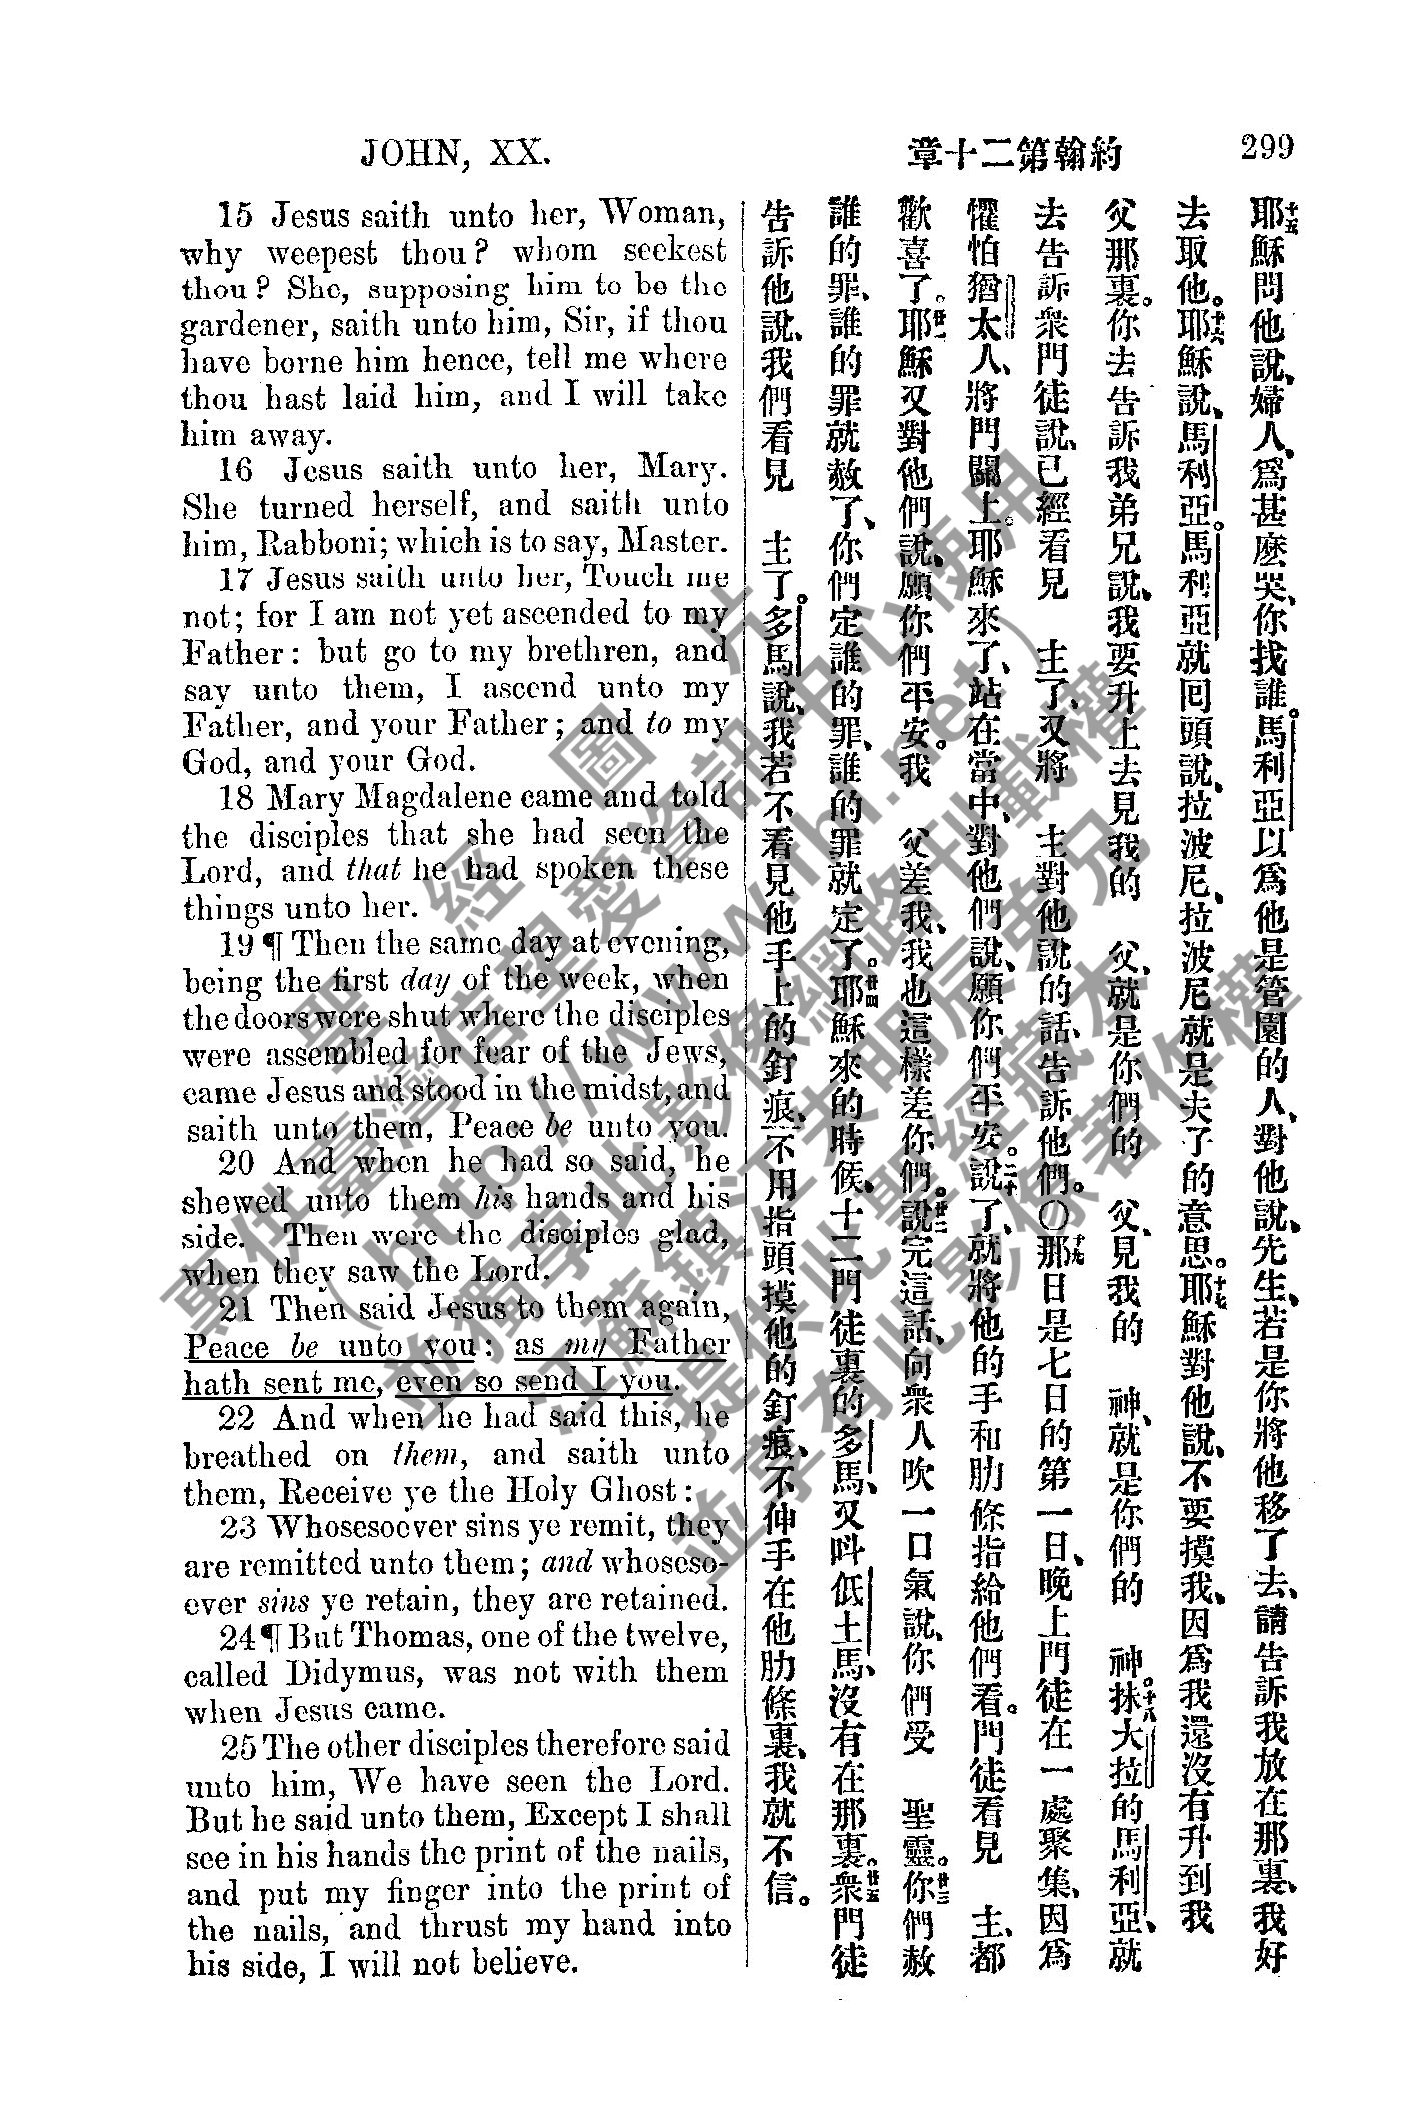 JOHN, XX.
約翰第二十章
299
15 Jesus saith unto her, Woman,
why weepest thou? whom seekest
thou? She, supposing him to be the
gardener, saith unto him, Sir, if thou
have borne him hence, tell me where
thou hast laid him, and I will take
him away.
16 Jesus saith unto her, Mary.
She turned herself, and saith unto
him, Rabboni; which is to say, Master.
17 Jesus saith unto her, Touch me
not; for I am not yet ascended to my
Father: but go to my brethren, and
say unto them, I ascend unto my
Father, and your Father; and to my
God, and your God.
18 Mary Magdalene came and told
the disciples that she had seen the
Lord, and that he had spoken these
things unto her.
19 ¶ Then the same day at evening,
being the first day of the week, when
the doors were shut where the disciples
were assembled for fear of the Jews,
came Jesus and stood in the midst, and
saith unto them, Peace be unto you.
20 And when he had so said, he
shewed unto them his hands and his
side. Then were the disciples glad,
when they saw the Lord.
21 Then said Jesus to them again,
Peace be unto you: as my Father
hath sent me, even so send I you.
22 And when he had said this, he
breathed on them, and saith unto
them, Receive ye the Holy Ghost:
23 Whosesoever sins ye remit, they
are remitted unto them; and whoseso-
ever sins ye retain, they are retained.
24 ¶ But Thomas, one of the twelve,
called Didymus, was not with them
when Jesus came.
25 The other disciples therefore said
unto him, We have seen the Lord.
But he said unto them, Except I shall
see in his hands the print of the nails,
and put my finger into the print of
the nails, and thrust my hand into
his side, I will not believe.
十五耶穌問他說、婦人、爲甚麽哭、你找誰。馬利亞以爲他是管園的人、對他說、先生、若是你將他移了去、請告訴我放在那裏、我好
去取他。十六耶穌說、馬利亞。馬利亞就囘頭說、拉波尼、拉波尼就是夫子的意思。十七耶穌對他說、不要摸我、因爲我還沒有升到我
父那裏。你去告訴我弟兄說、我要升上去見我的 父、就是你們的 父、見我的 神、就是你們的 神。十八抹大拉的馬利亞、就
去告訴衆門徒說、已經看見 主了、又將 主對他說的話、告訴他們。〇十九那日是七日的第一日、晚上門徒在一處聚集、因爲
懼怕猶太人、將門關上。耶穌來了、站在當中、對他們說、願你們平安。二十說了、就將他的手和肋條指給他們看。門徒看見 主、都
歡喜了。廿一耶穌又對他們說、願你們平安。我 父差我、我也這樣差你們。廿二說完這話、向衆人吹一口氣說、你們受 聖靈。廿三你們赦
誰的罪、誰的罪就赦了、你們定誰的罪、誰的罪就定了。廿四耶穌來的時候、十二門徒裏的多馬、又呌低土馬、沒有在那裏。廿五衆門徒
告訴他說、我們看見 主了。多馬說、我若不看見他手上的釘痕、不用指頭摸他的釘痕、不伸手在他肋條裏、我就不信。
聖經圖片
專供臺灣信望愛資訊中心使用
( http://www.fhl.net )
並獨享此影像網路刊載權
江蘇鎮江朱明辰弟兄
提供此聖經藏本
並享有此影像著作權